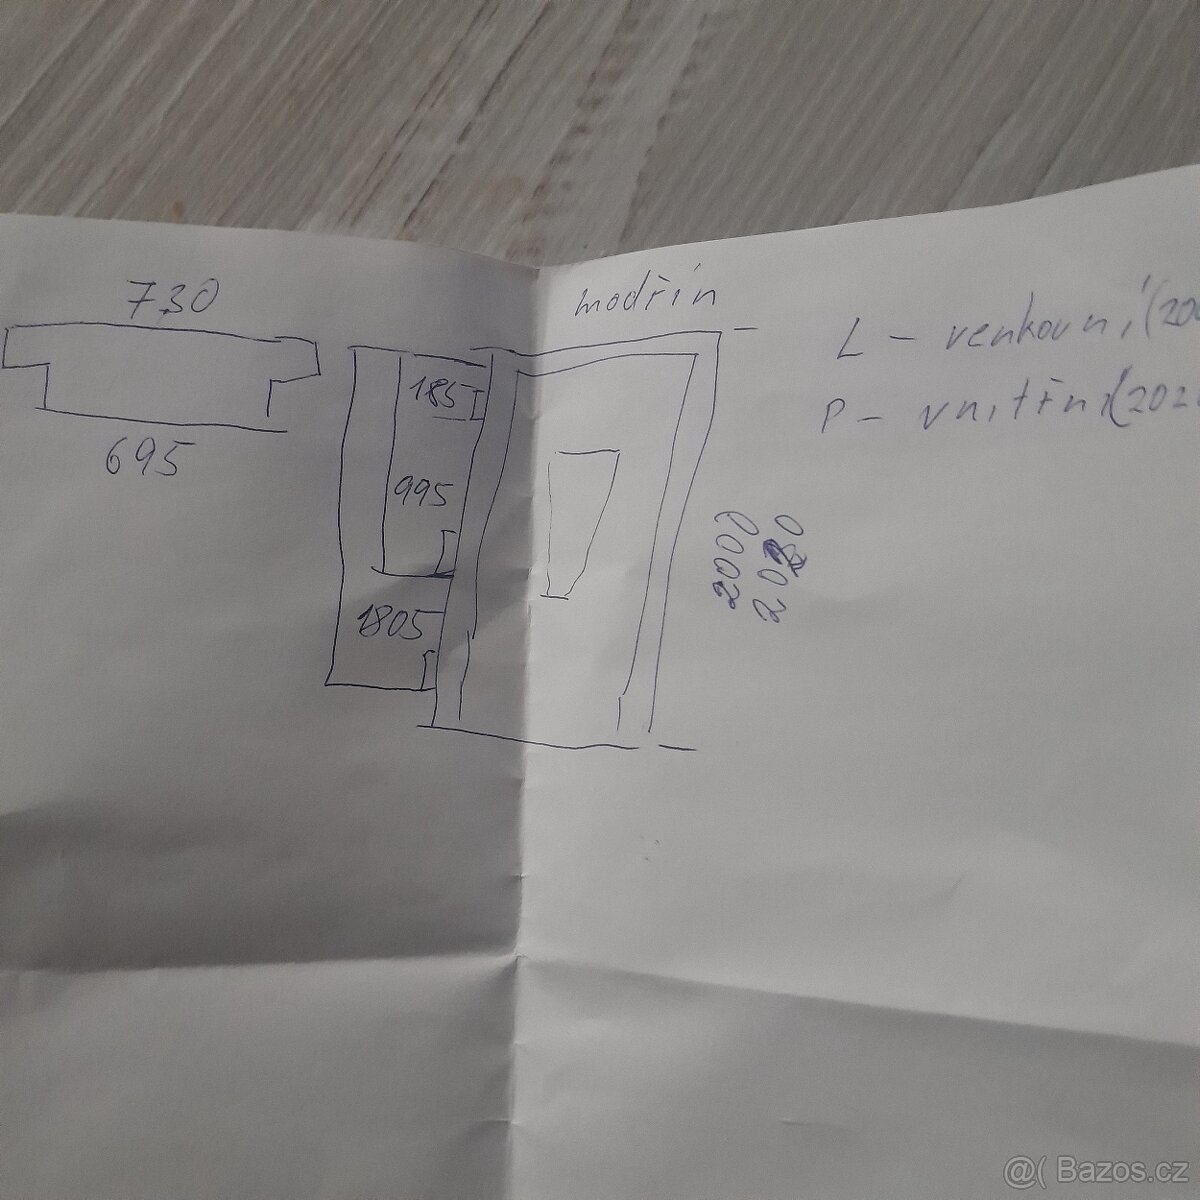 730
modřín
L - venkovní (20
P - vnitřní (202
185
695
995
2000
1805
@( Bazos.cz